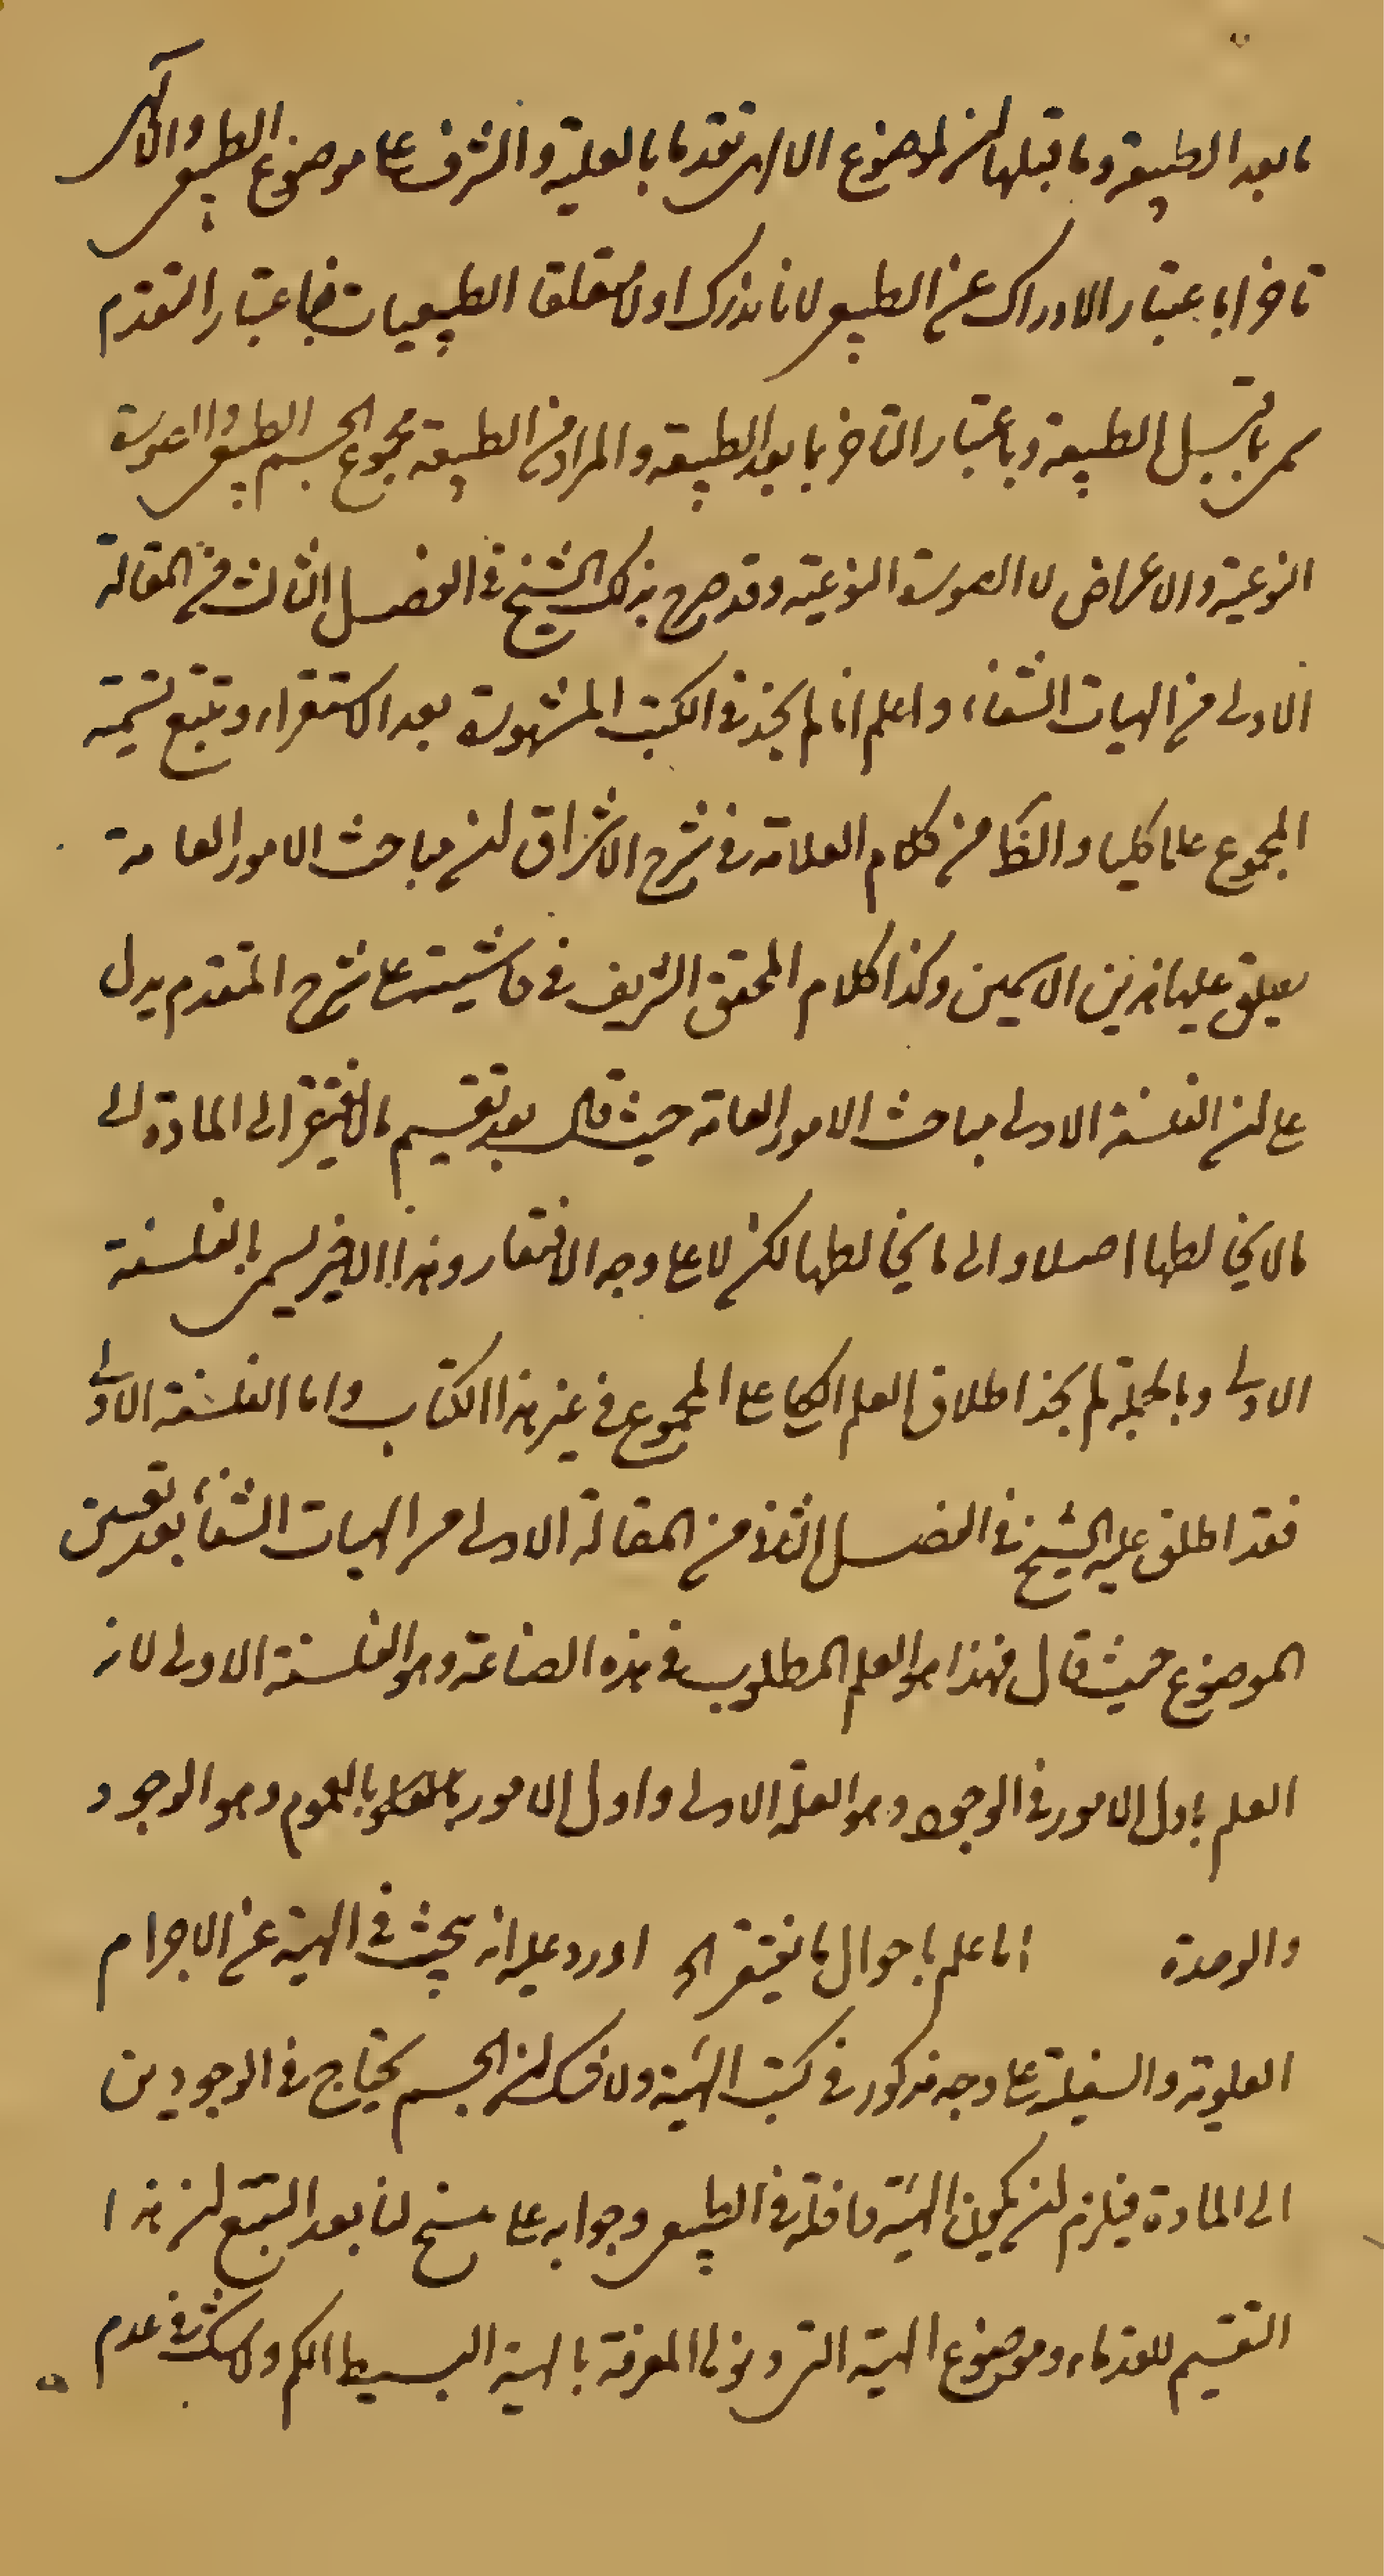 ما بعد الطبيعة وما قبلها لان لموضوع الالهي تقدما بالعلية والشرف على موضوع الطبيعي والالهي
تاخرا باعتبار الادراك عن الطبيعي لانا ندرك اولا متعلقا الطبيعيات فباعتبار التقدم
سمي بما قبل الطبيعة وباعتبار التاخر بما بعد الطبيعة والمراد من الطبيعة مجموع الجسم الطبيعي والصورة
النوعية والاعراض لا الصورة النوعية وقد صرح بذلك الشيخ في الفصل الثالث من المقالة
الاولى من الهيات الشفاء واعلم انا لم نجد في الكتب المشهورة بعد الاستقراء وتتبع تسمية
المجموع علما كليا والظ من كلام العلامة في شرح الاشراق ان مباحث الامور العامة
يطلق عليها هذين الاسمين وكذا كلام المحقق الشريف في حاشيته على شرح المتقدم يدل
على ان الفلسفة الاولى مباحث الامور العامة حيث قال بعد تقسيم ما لا يفتقر الى المادة الى
ما لا يخالطها اصلا والى ما يخالطها لكن لا على وجه الافتقار وهذا الاخير يسمى بالفلسفة
الاولى وبالجملة لم نجد اطلاق العلم الكلي على المجموع في غير هذا الكتاب واما الفلسفة الاولى
فقد اطلق عليه الشيخ في الفصل الثاني من المقالة الاولى من الهيات الشفاء بعد تعيين
الموضوع حيث قال فهذا هو العلم المطلوب في هذه الصناعة وهو الفلسفة الاولى لانه
العلم باول الامور في الوجود وهو العلة الاولى واول الامور بالعموم وهو الوجود
والوحدة اما علم باحوال ما يفتقر الخ اورد عليه انه يبحث في الهيئة عن الاجرام
العلوية والسفلية على وجه مذكور في كتب الهيئة ولا شك ان الجسم يحتاج في الوجودين
الى المادة فيلزم ان يكون الهيئة داخلة في الطبيعي وجوابه على ما سنح لنا بعد التتبع ان هذا
التقسيم للقدماء وموضوع الهيئة التي دونوها المعرفة بالهيئة البسيطة الكم ولا شك في عدم